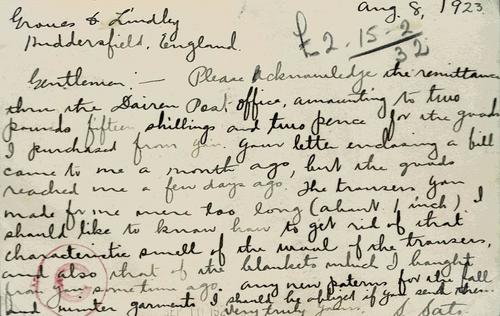 Aug. 8, 1923
Groves & Lindley
Huddersfield, England.
£2-15-2
32
Gentlemen:— Please acknowledge the remittance
thru the Dairen Post office, amounting to two
pounds fifteen shillings and two pence for the goods
I purchased from you. Your letter enclosing a bill
came to me a month ago, but the goods
reached me a few days ago. The trousers you
made for me were too long (about 1 inch). I
should like to know how to get rid of that
characteristic smell of the wool of the trousers,
and also that of the blankets which I bought
from you sometime ago. Any new paterns for the fall
and winter garments I should be obliged if you send them.
Very truly yours, S. Sato